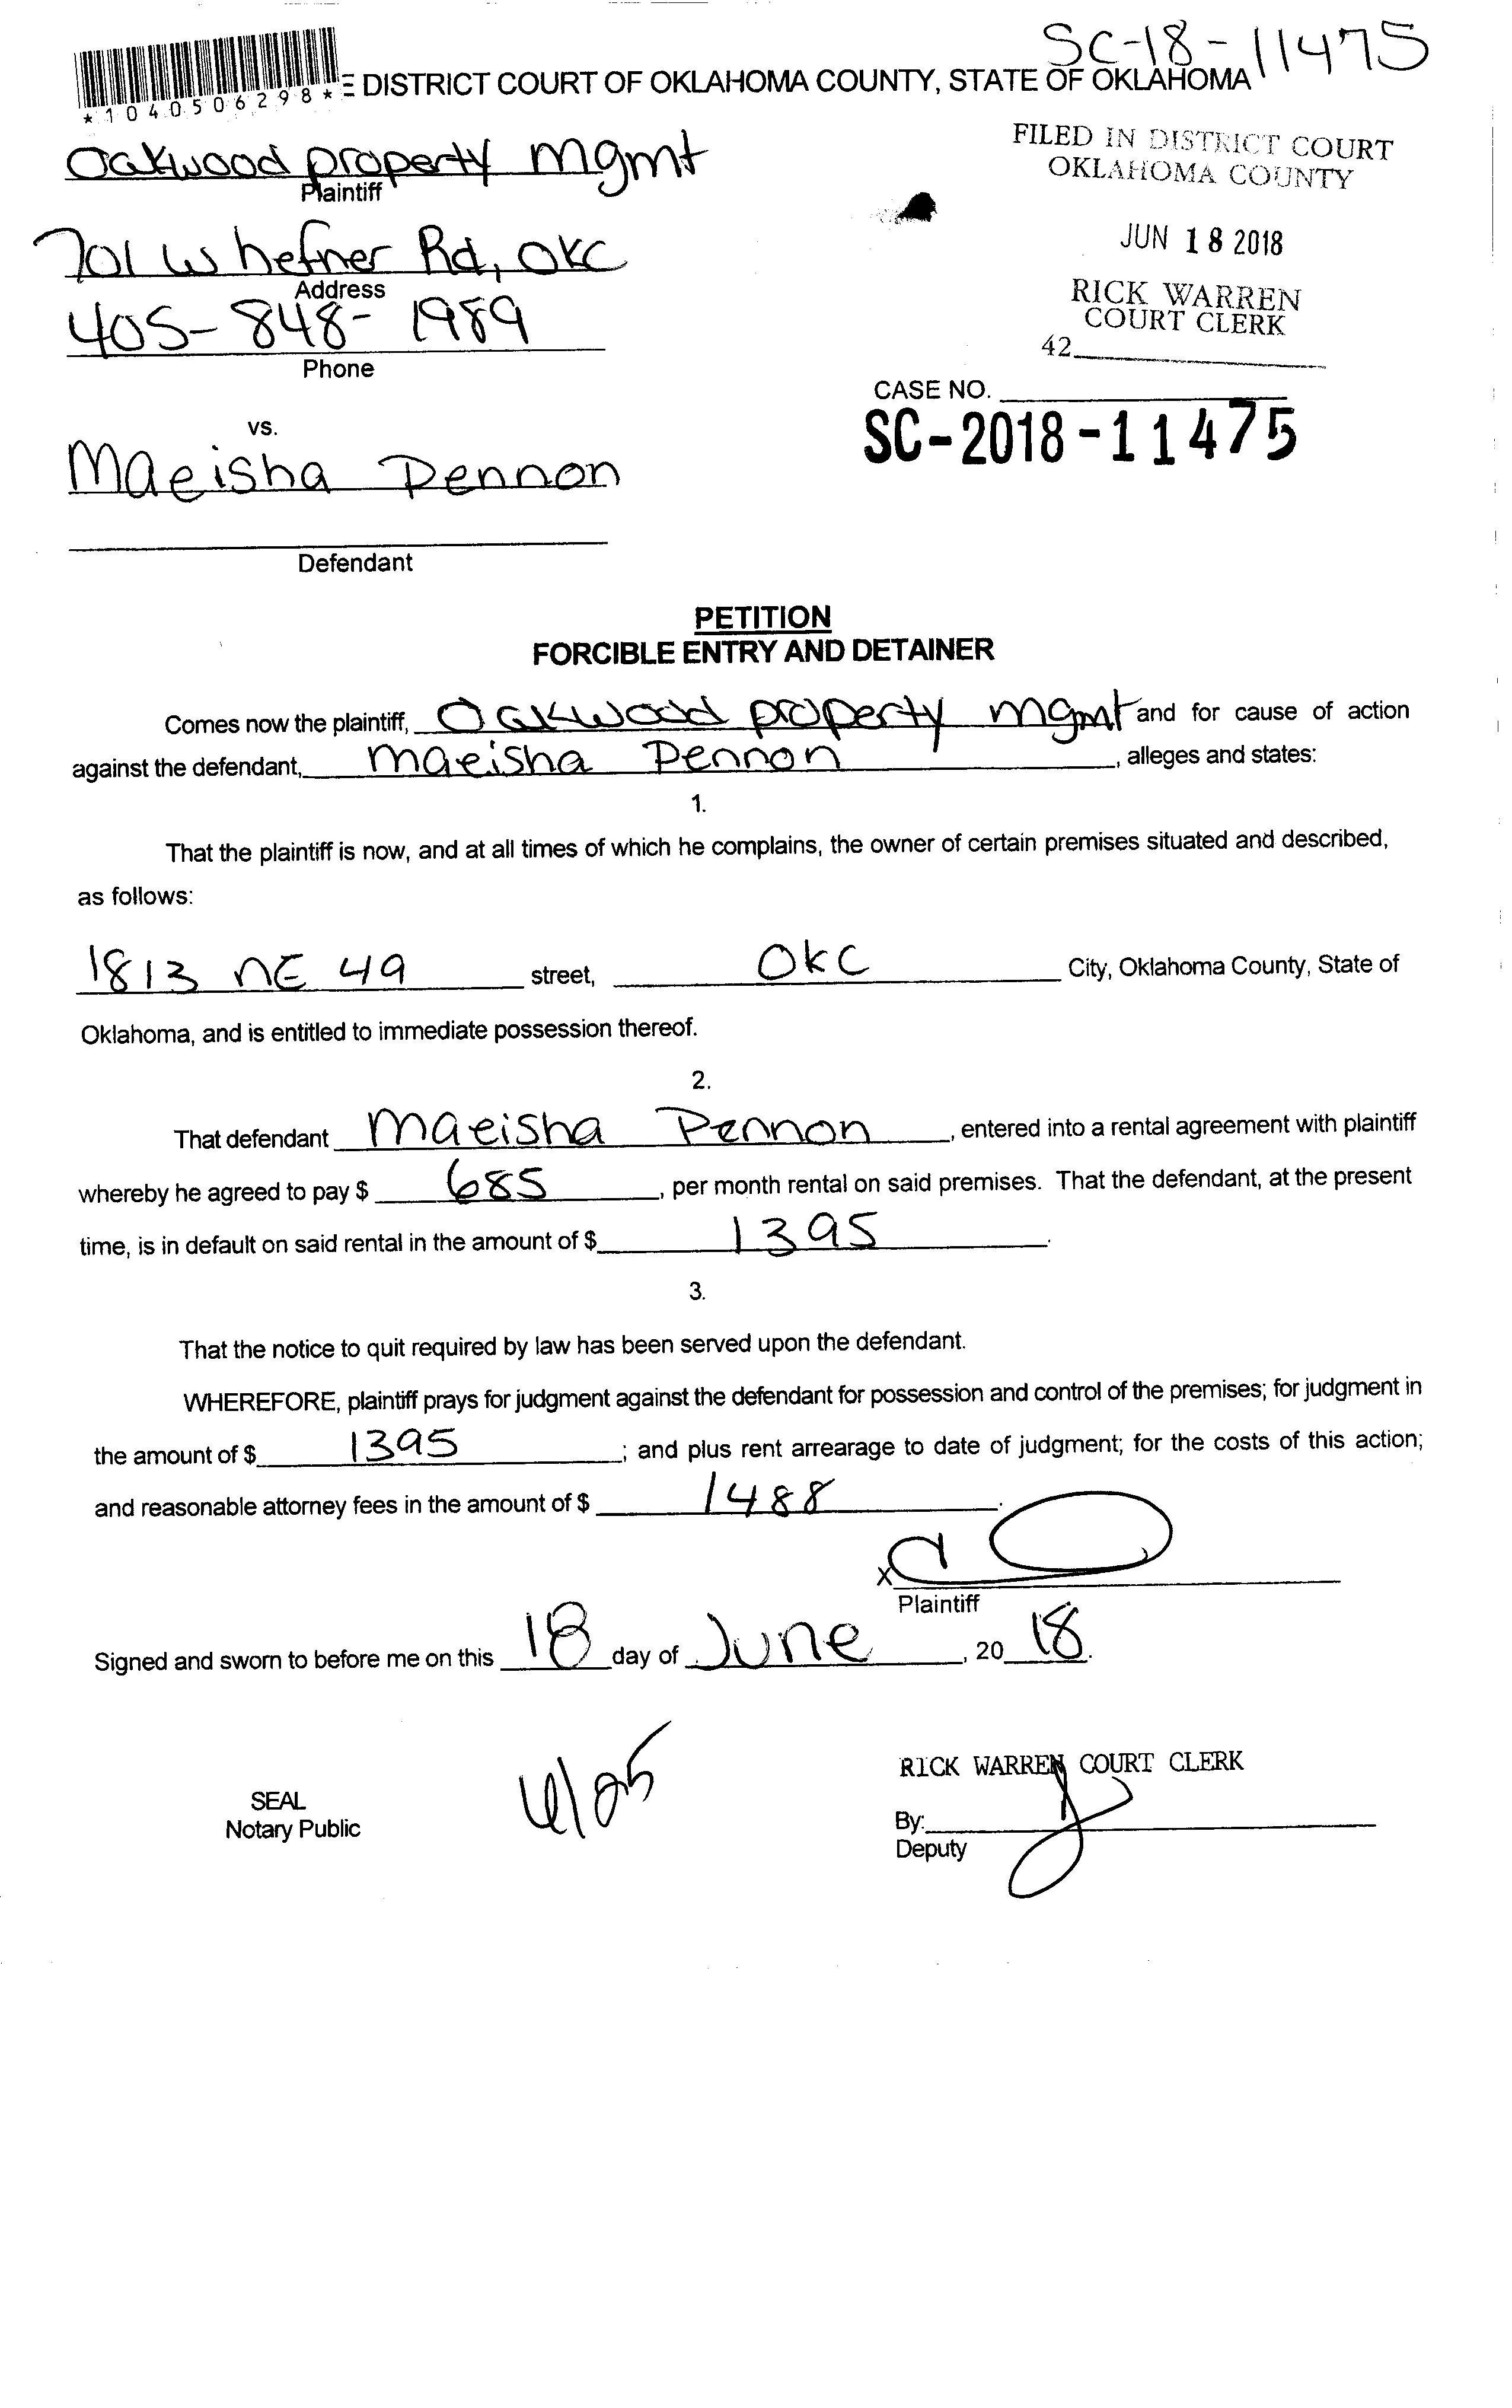 SC-18-11475
*1040506298*
E DISTRICT COURT OF OKLAHOMA COUNTY, STATE OF OKLAHOMA
Oakwood property mgmt
Plaintiff
FILED IN DISTRICT COURT
OKLAHOMA COUNTY
JUN 18 2018
RICK WARREN
COURT CLERK
42
701 W hefner Rd, OKC
Address
405-848-1989
Phone
CASE NO.
SC-2018-11475
vs.
Maeisha Pennon
Defendant
PETITION
FORCIBLE ENTRY AND DETAINER
Comes now the plaintiff, Oakwood property mgmt and for cause of action
against the defendant, maeisha Pennon, alleges and states:
1.
That the plaintiff is now, and at all times of which he complains, the owner of certain premises situated and described,
as follows:
1813 NE 49 street, OKC City, Oklahoma County, State of
Oklahoma, and is entitled to immediate possession thereof.
2.
That defendant maeisha Pennon, entered into a rental agreement with plaintiff
whereby he agreed to pay $ 685, per month rental on said premises. That the defendant, at the present
time, is in default on said rental in the amount of $ 1395.
3.
That the notice to quit required by law has been served upon the defendant.
WHEREFORE, plaintiff prays for judgment against the defendant for possession and control of the premises; for judgment in
the amount of $ 1395; and plus rent arrearage to date of judgment; for the costs of this action;
and reasonable attorney fees in the amount of $ 1488.
x
Plaintiff
Signed and sworn to before me on this 18 day of June, 20 18.
6/25
SEAL
Notary Public
RICK WARREN COURT CLERK
By:
Deputy